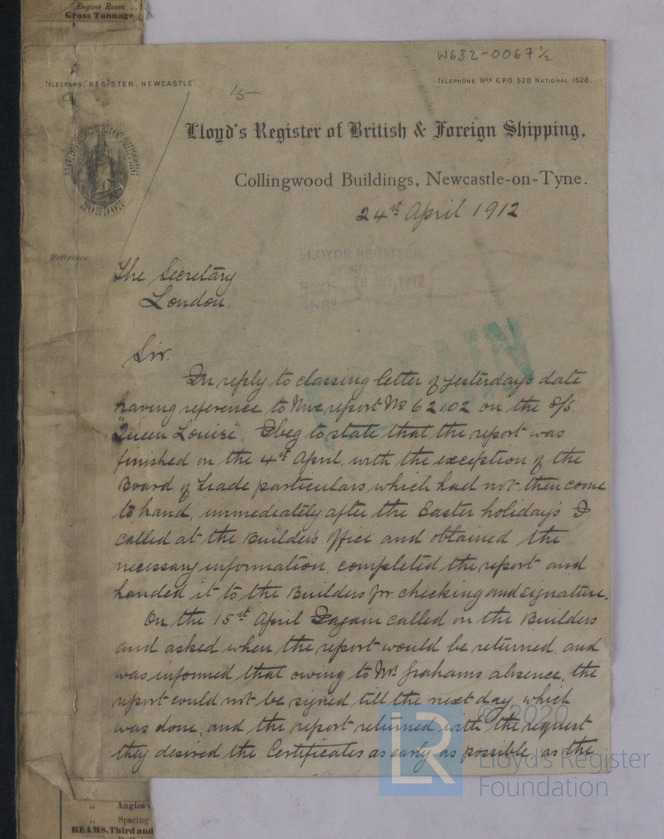 Engine Room
Gross Tonnage
W632-0067½
TELEGRAMS, "REGISTER, NEWCASTLE"
TELEPHONE Nos G.P.O. 528 NATIONAL 1528.
15—
Lloyd's Register of British & Foreign Shipping,
Collingwood Buildings, Newcastle-on-Tyne.
24st April 1912
Reference
LLOYDS REGISTER,
LONDON
1912
The Secretary
London.
Sir.
In reply to classing letter of yesterdays date
having reference to Nwc report No 62102 on the S/S.
"Queen Louise". I beg to state that the report was
finished on the 4st April, with the exception of the
Board of Trade particulars which had not then come
to hand, immediately after the Easter holidays I
called at the Builders office and obtained the
necessary information, completed the report and
handed it to the Builders for checking and signature.
On the 15st April I again called on the Builders
and asked when the report would be returned, and
was informed that owing to Mr Grahams absence, the
report could not be signed till the next day, which
was done, and the report returned with the request
they desired the Certificates as early as possible, as the
LR
2020
Lloyd's Register
Foundation
" Angles
" Spacing
BEAMS, Third and